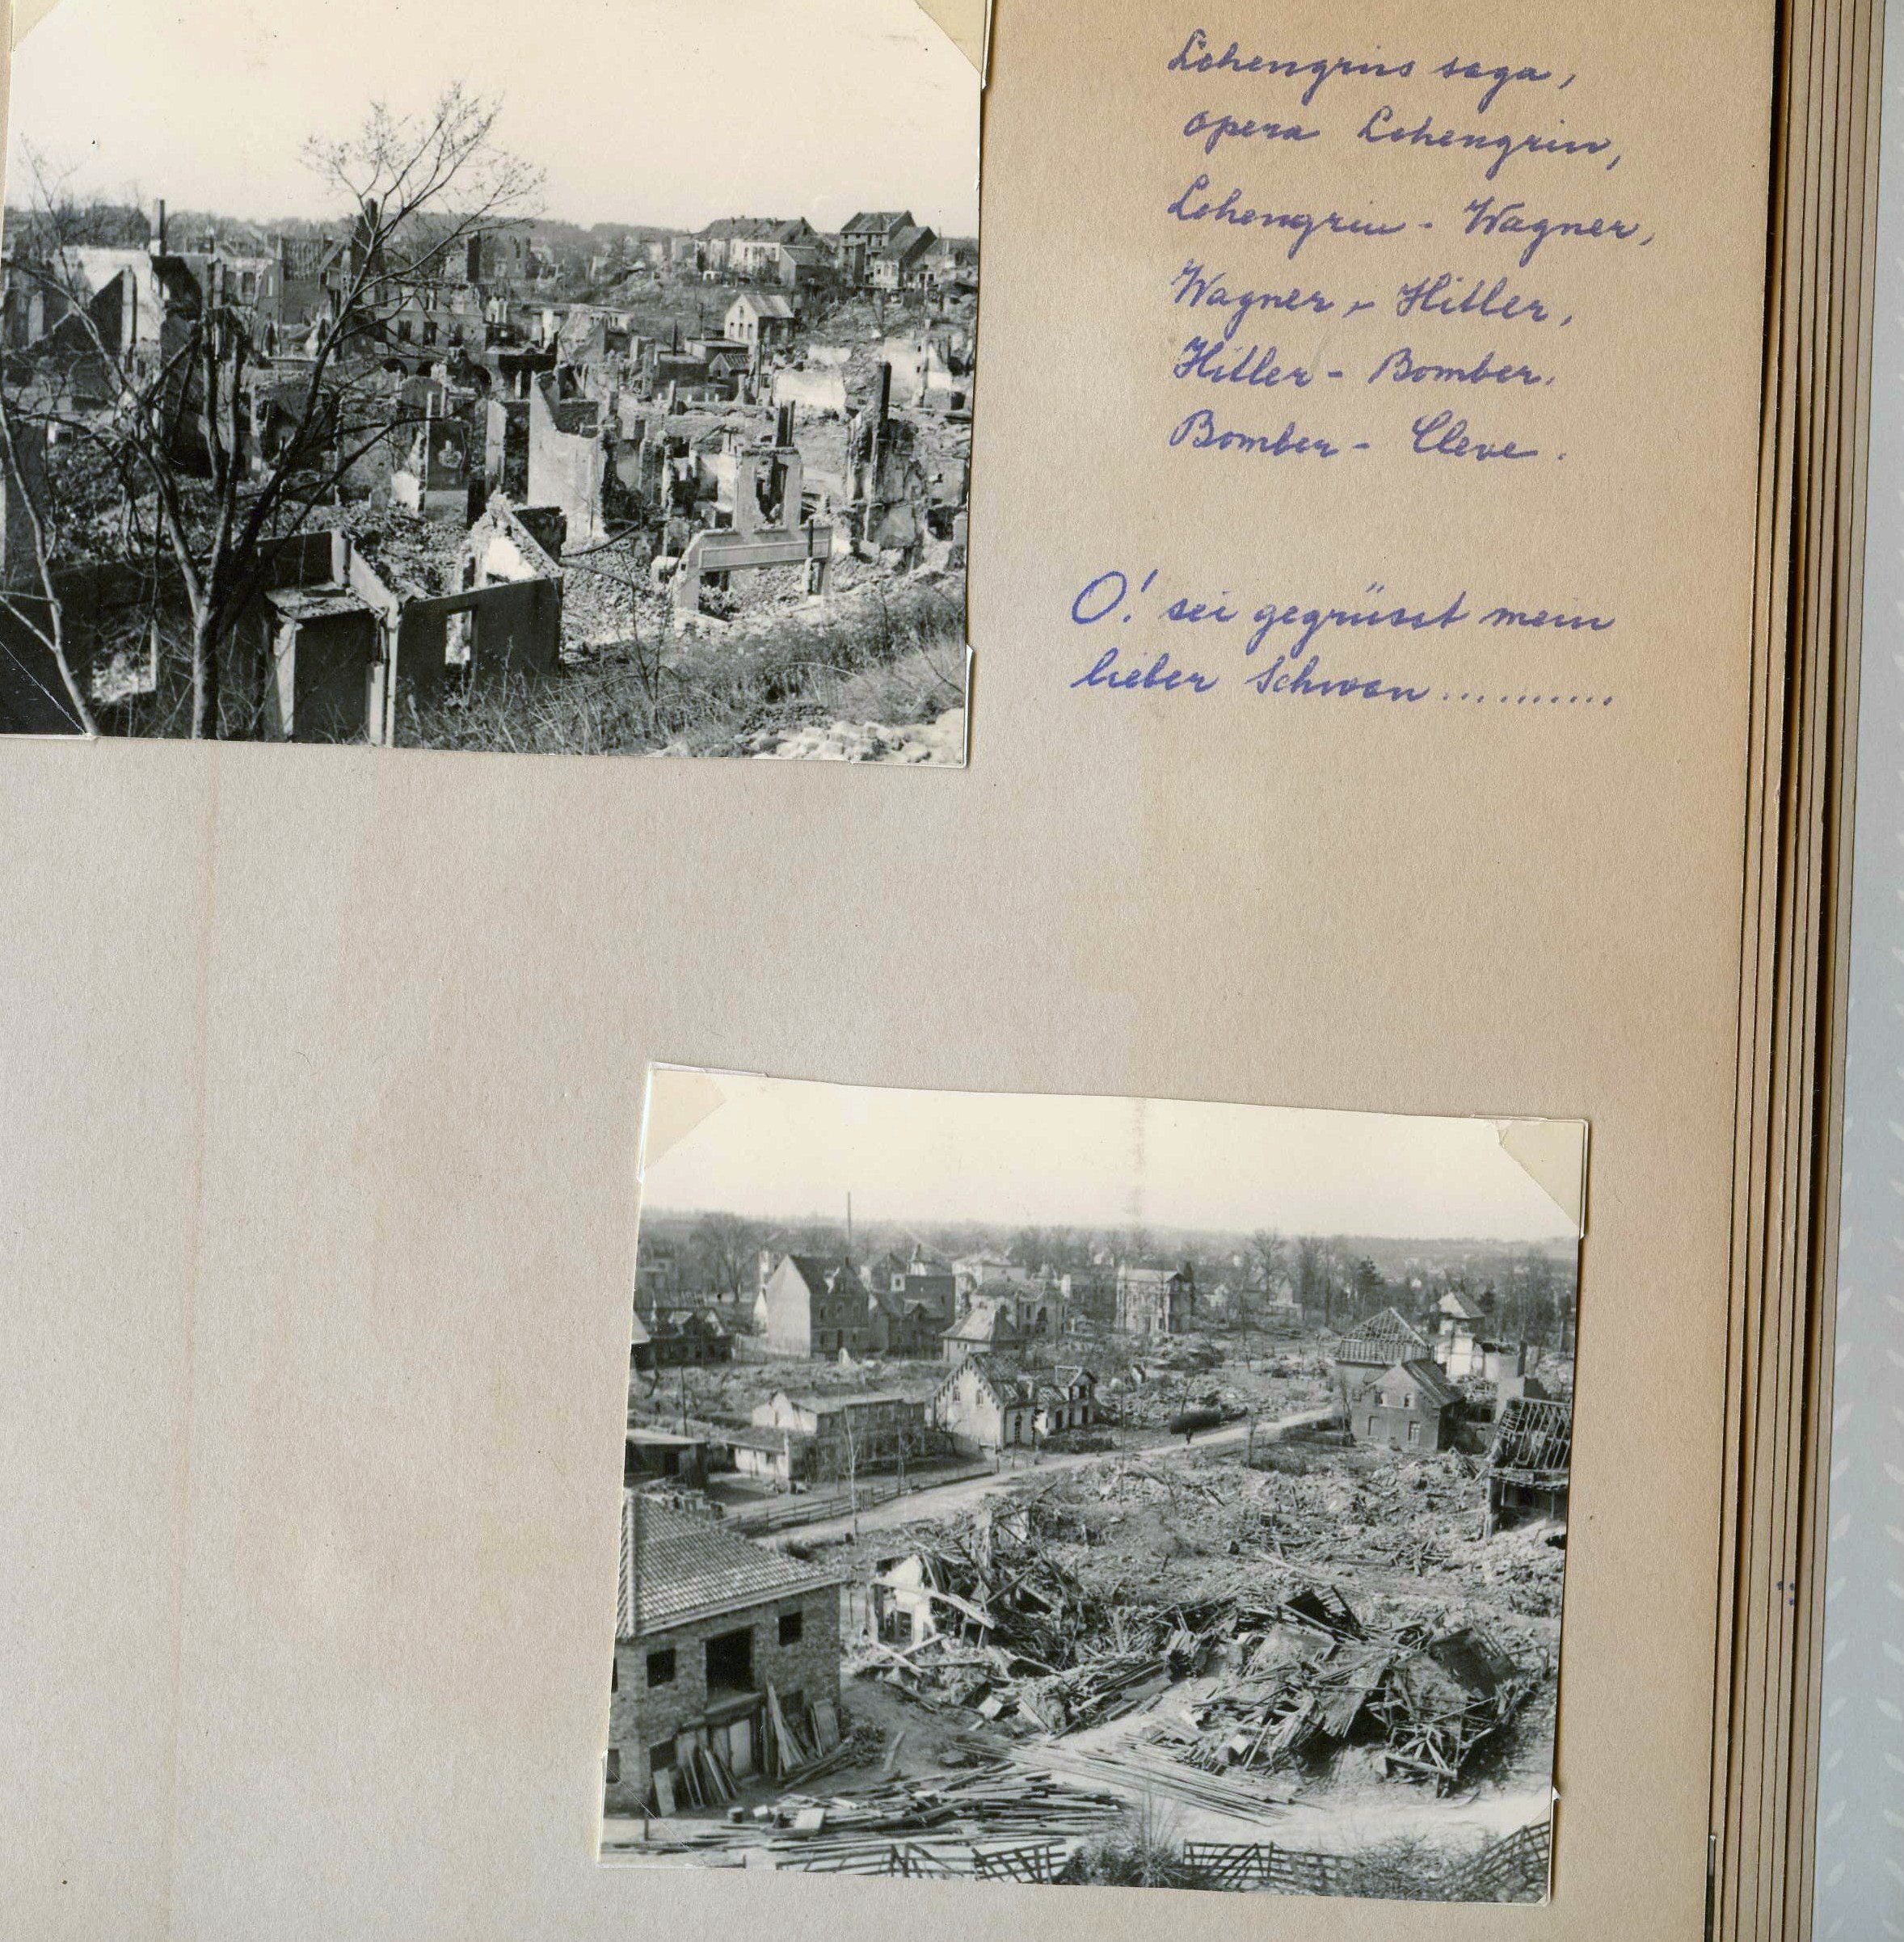 Lohengrins saga,
opera Lohengrin,
Lohengrin - Wagner,
Wagner - Hitler,
Hitler - Bomber.
Bomber - Cleve.
O! sei gegrüsst mein
lieber Schwan..........